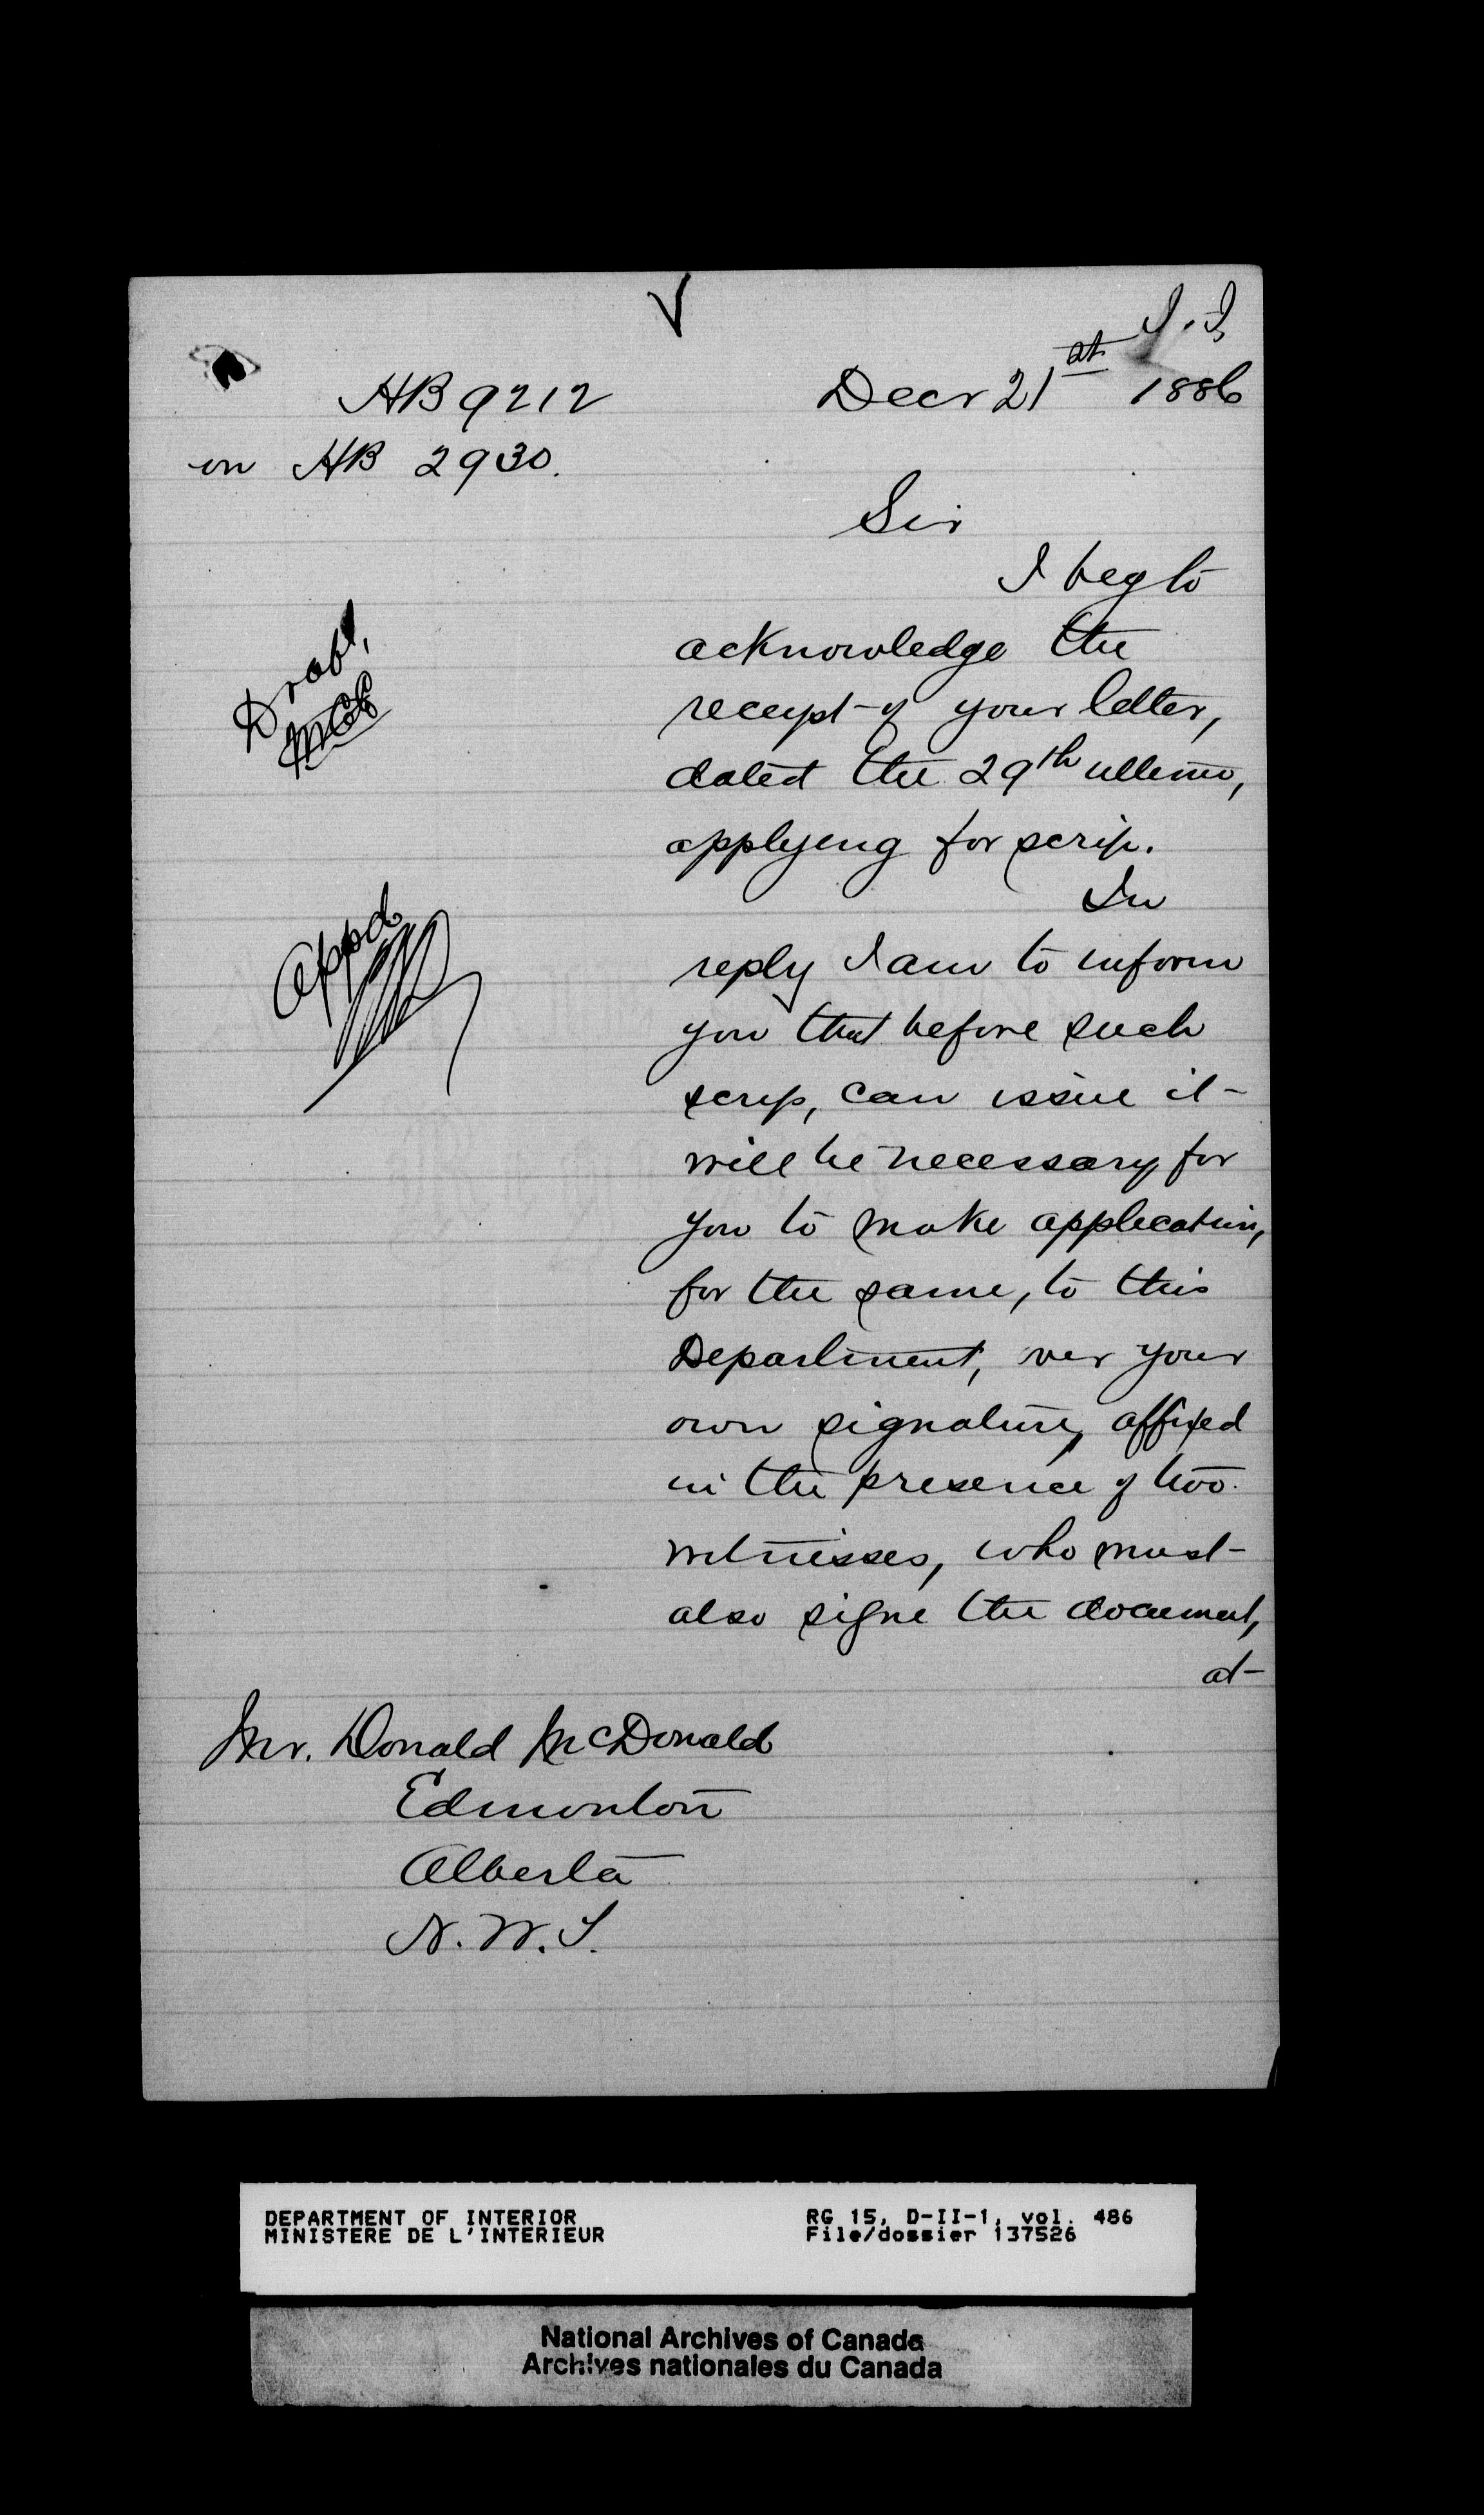 HB 9212
on HB 2930.
Decr 21st 1886
Sir
I beg to
acknowledge the
receipt of your letter,
dated the 29th ultimo,
applying for scrip.
In
reply I am to inform
you that before such
scrip, can issue it
will be necessary for
you to make application,
for the same, to this
Department, over your
own signature, affixed
in the presence of two
witnesses, who must
also signe the document,
at
Draft,
Appd
Mr. Donald McDonald
Edmonton
Alberta
N.W.T.
DEPARTMENT OF INTERIOR
MINISTERE DE L'INTERIEUR
RG 15, D-II-1, vol. 486
File/dossier 137526
National Archives of Canada
Archives nationales du Canada